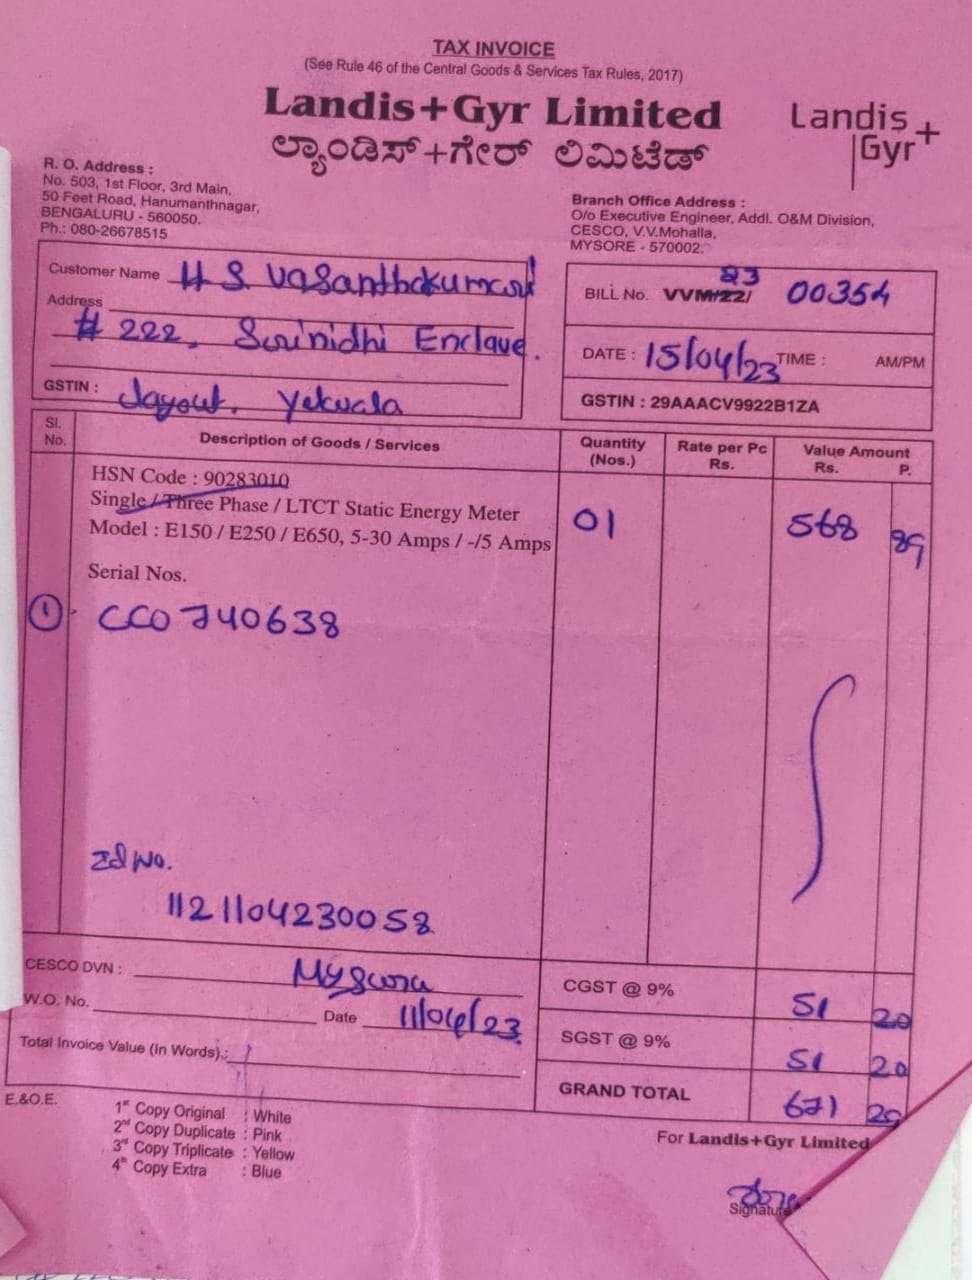 TAX INVOICE
(See Rule 46 of the Central Goods & Services Tax Rules, 2017)
Landis+Gyr Limited
ಲ್ಯಾಂಡಿಸ್+ಗೇರ್ ಲಿಮಿಟೆಡ್
Landis
Gyr+
R. O. Address :
No. 503, 1st Floor, 3rd Main,
50 Feet Road, Hanumanthnagar,
BENGALURU - 560050.
Ph.: 080-26678515
Branch Office Address :
O/o Executive Engineer, Addl. O&M Division,
CESCO, V.V.Mohalla,
MYSORE - 570002.
Customer Name H S Vasanthakumar
Address
# 222, Srinidhi Enclave.
GSTIN : Layout. Yelwala
BILL No. VVM/22/ 23 00354
DATE : 15/04/23 TIME : AM/PM
GSTIN : 29AAACV9922B1ZA
Sl. No. Description of Goods / Services Quantity (Nos.) Rate per Pc Rs. Value Amount Rs. P.
HSN Code : 90283010
Single / Three Phase / LTCT Static Energy Meter 01 568 89
Model : E150 / E250 / E650, 5-30 Amps / -/5 Amps
Serial Nos.
1 CC0740638
Id No.
1121104230058
CESCO DVN : Mysuru
W.O. No. Date 11/04/23
Total Invoice Value (In Words) :
CGST @ 9% 51 20
SGST @ 9% 51 20
GRAND TOTAL 671 29
E.&O.E.
1st Copy Original : White
2nd Copy Duplicate : Pink
3rd Copy Triplicate : Yellow
4th Copy Extra : Blue
For Landis+Gyr Limited
Signature